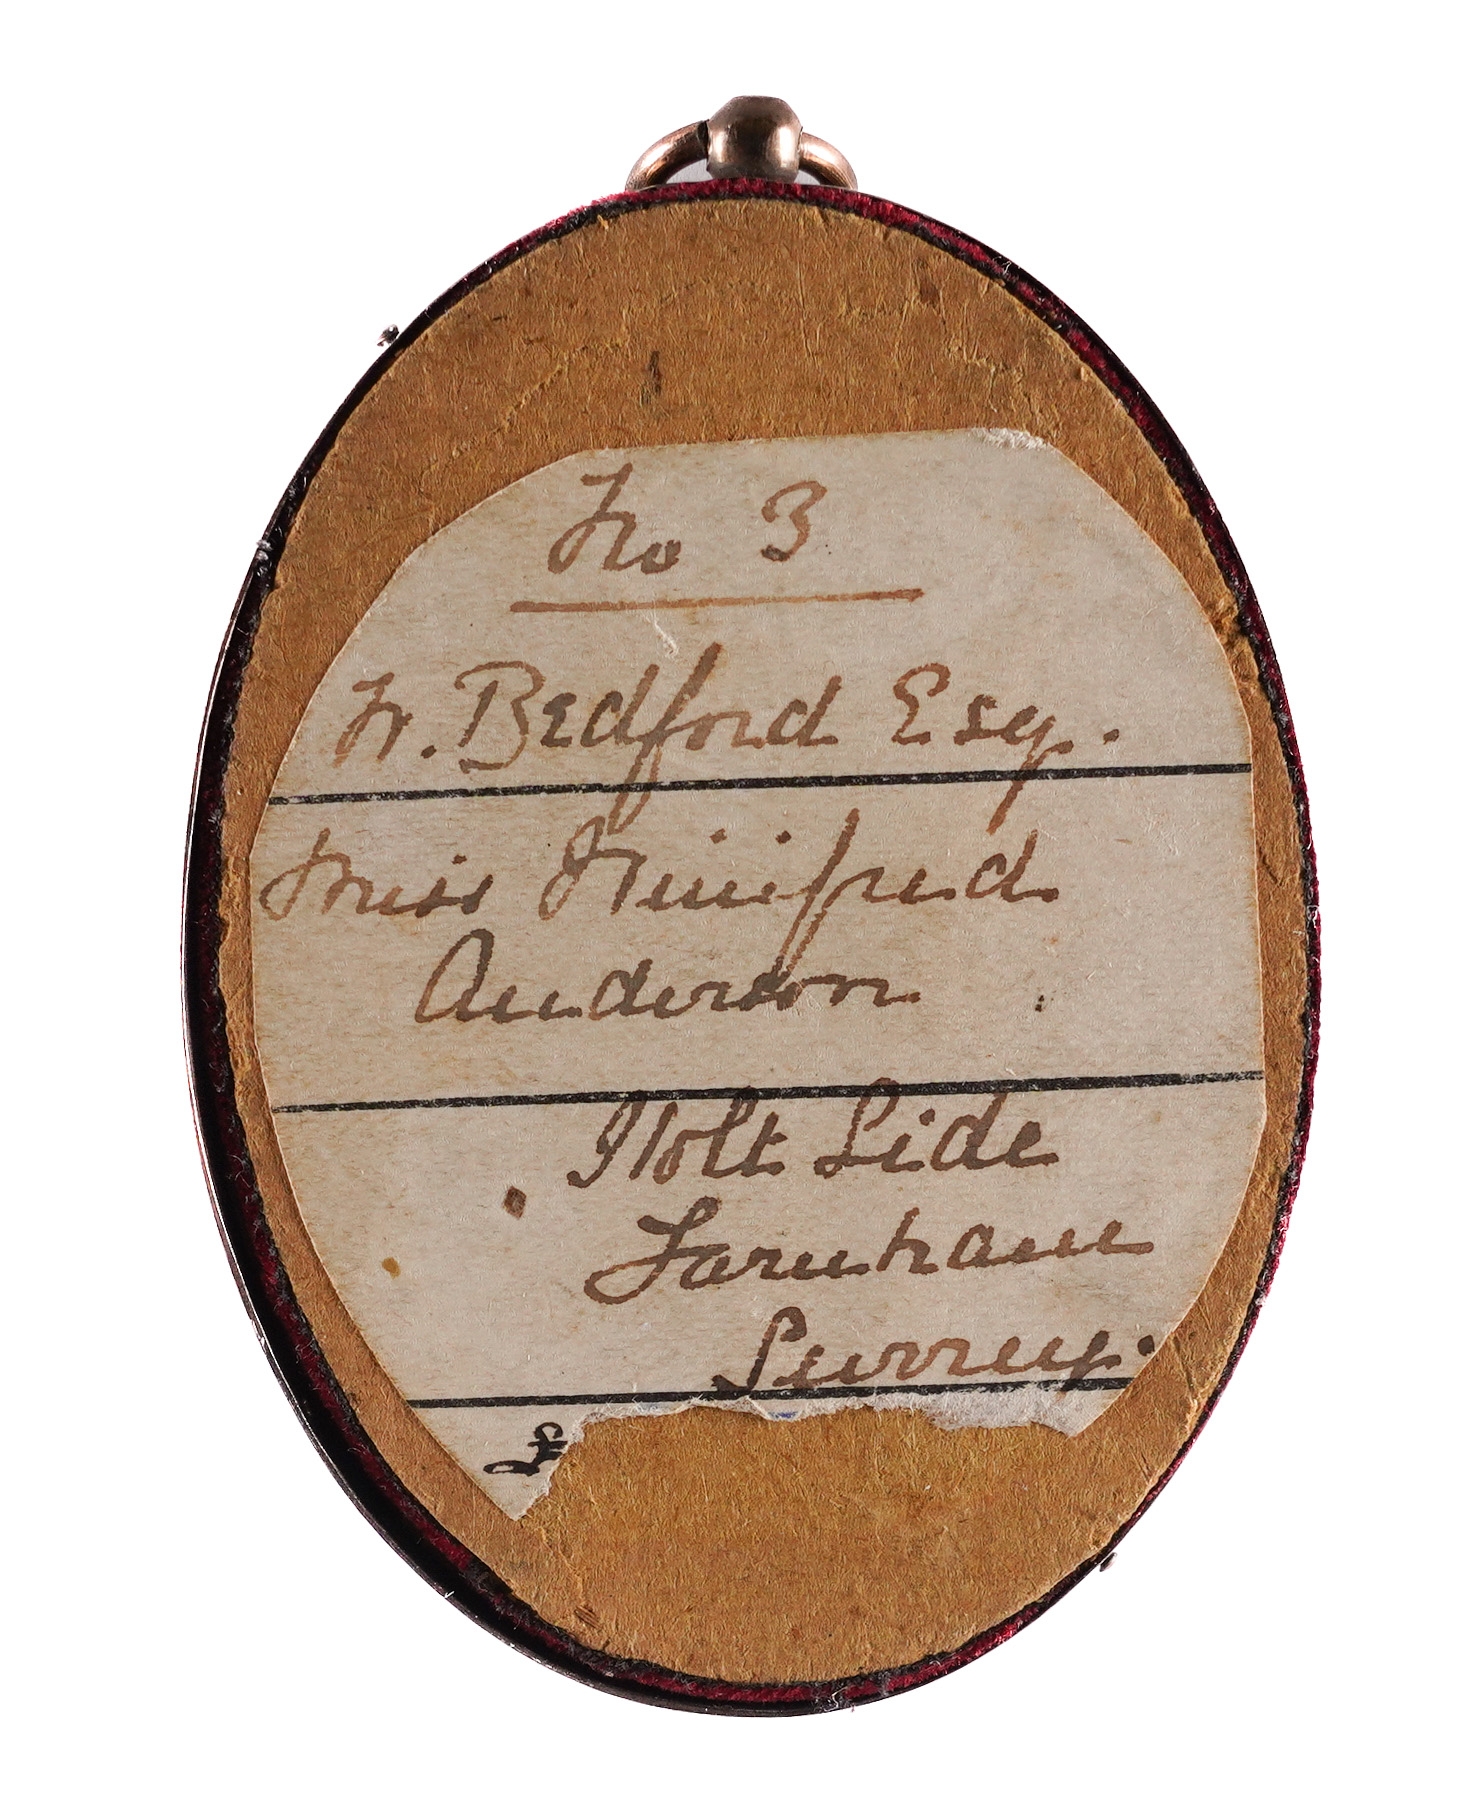 No 3
W. Bedford Esq.
Miss Winifred
Anderson
Holt Side
Farnham
Surrey.